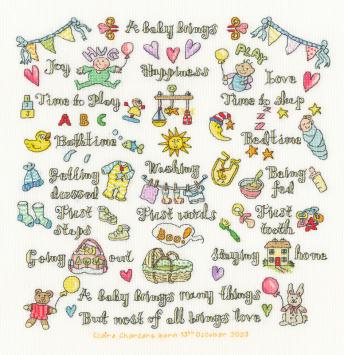 A baby brings
HUG
PLAY
Joy Happiness Love
Time to Play Time to sleep
A B C
z z z
Bathtime Bedtime
Getting dressed Washing Being fed
First steps First words First tooth
BOO!
Going out Staying home
A baby brings many things
But most of all brings love
born 13th October 2023